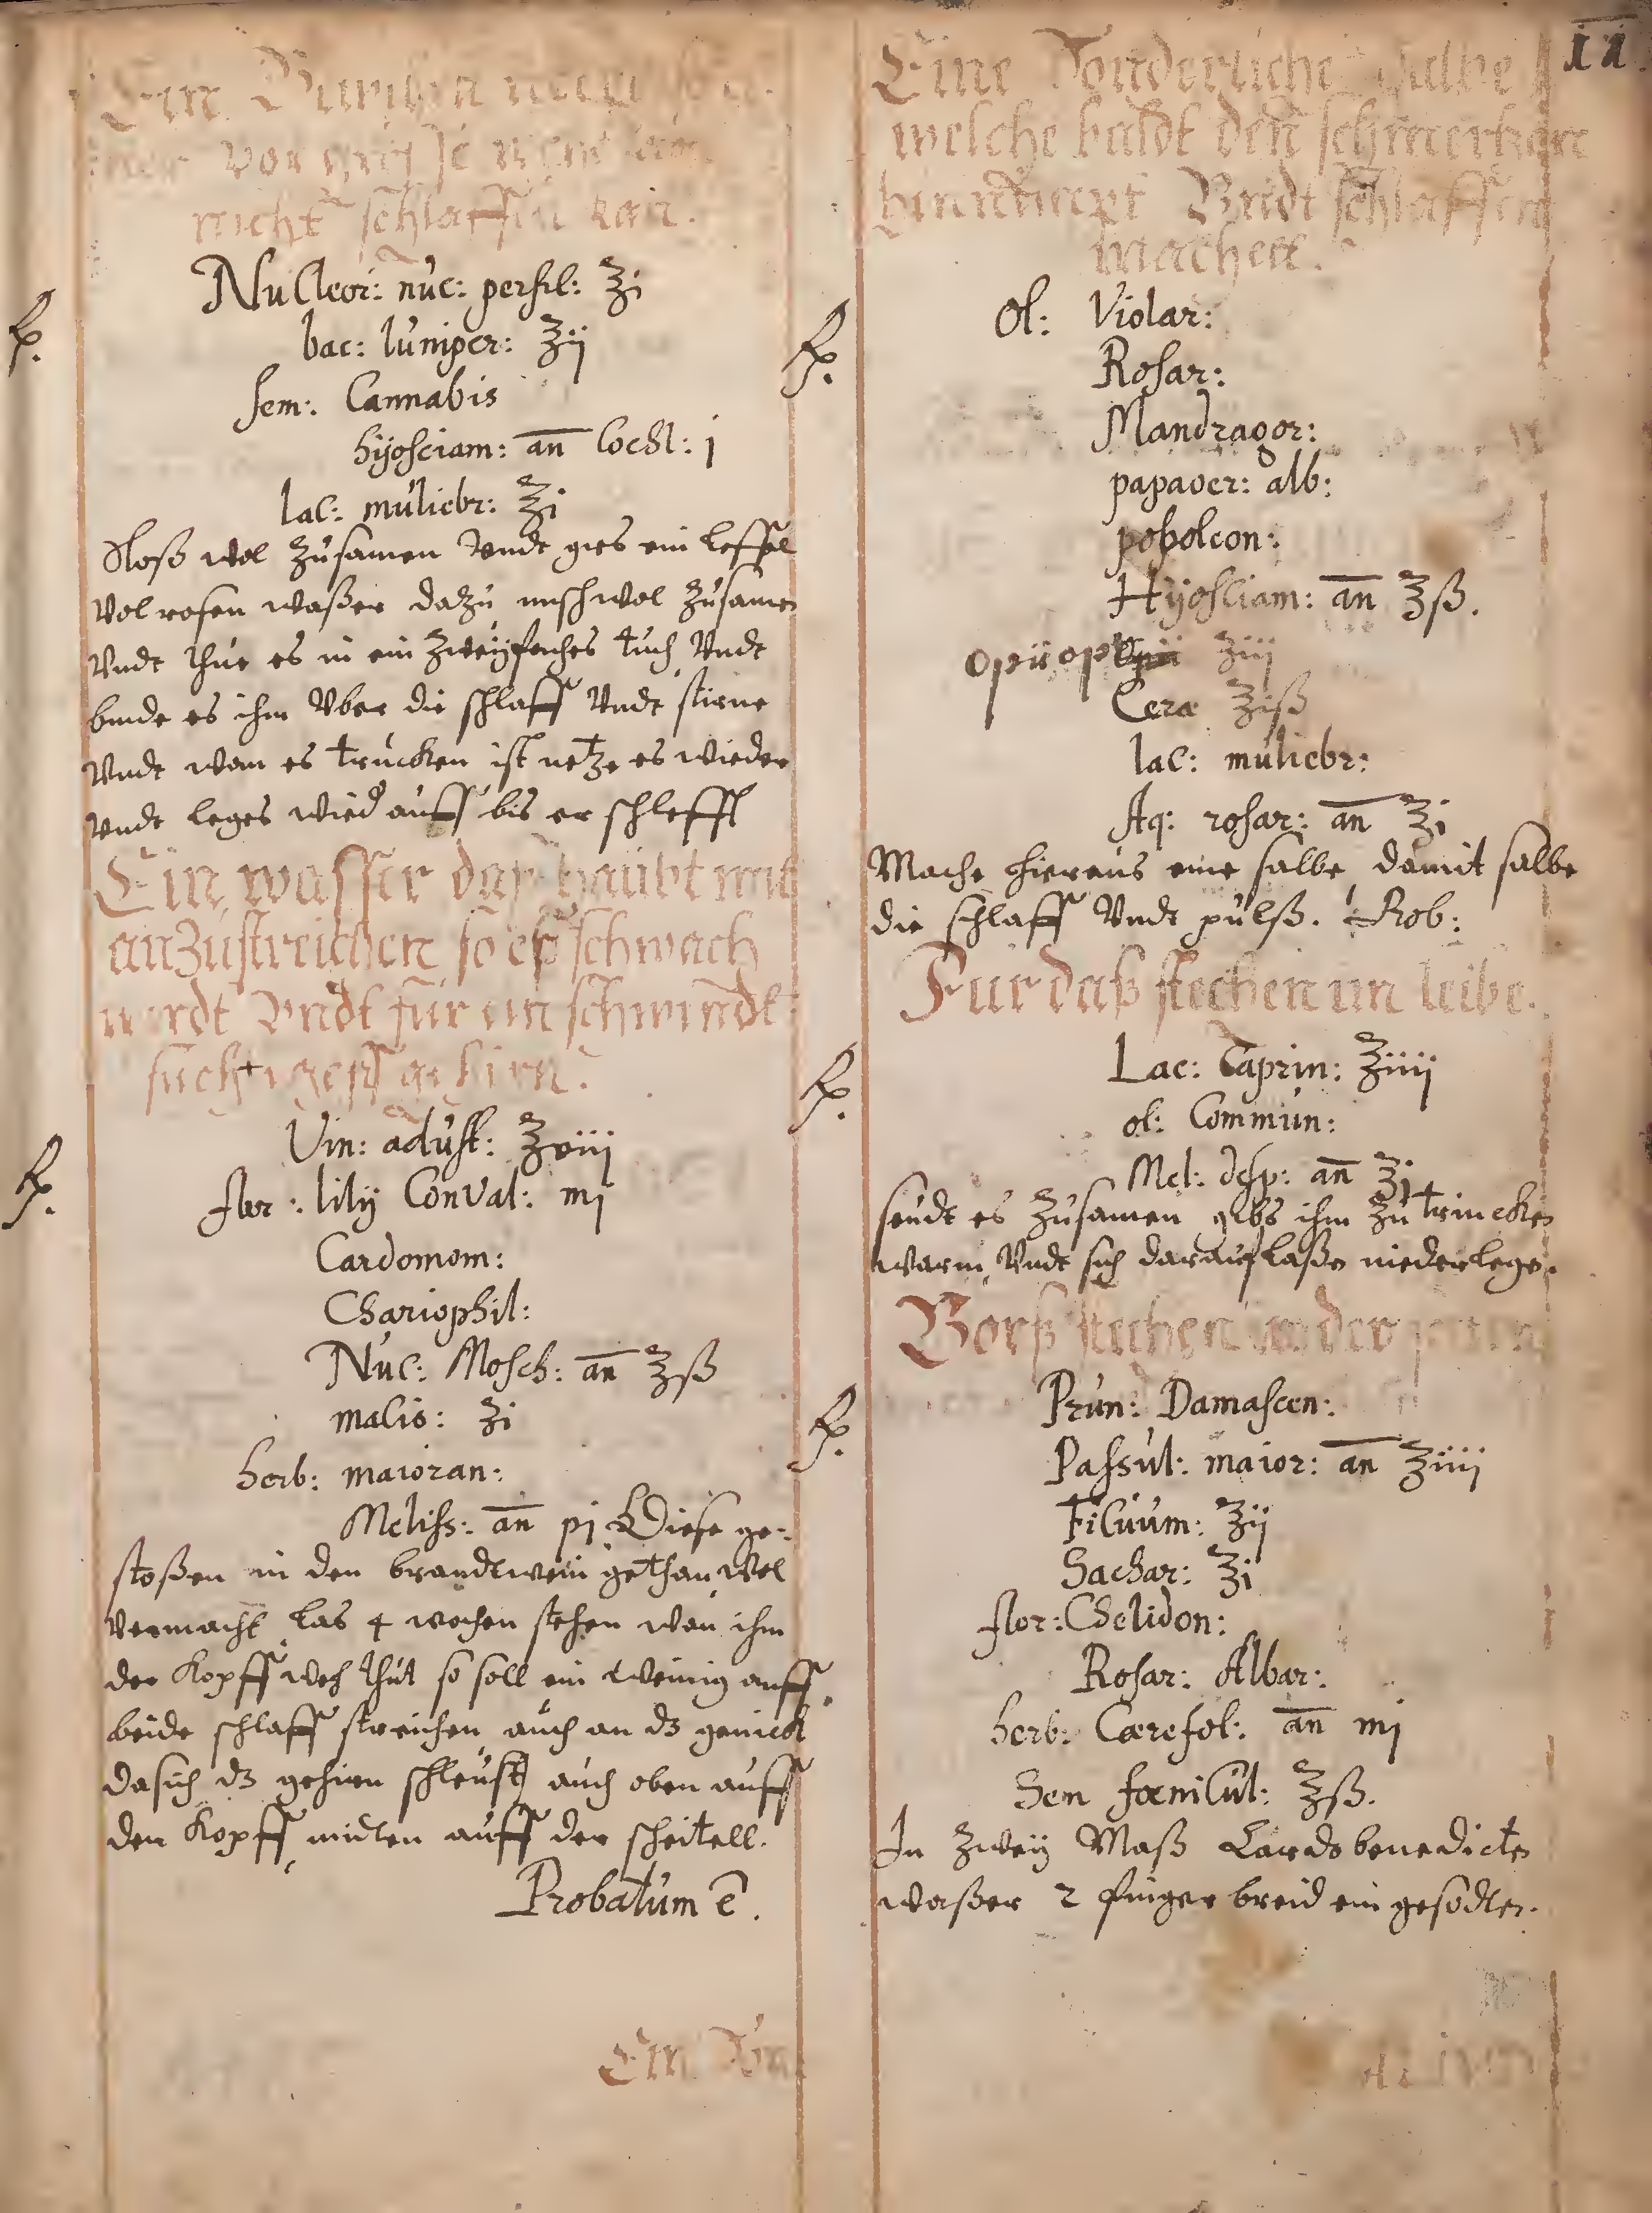 Ein
vor
nicht schlaffen kan.
Nucleor: nuc: persil: ʒi
bac: Iuniper: ʒij
sem: Cannabis
hijosciam: an Cochl: j
lac: muliebr: ʒi
Stoß wol zusamen Vndt gies ein leffel
Vol rosen waßer dazu misch wol zusamen
Vndt thue es in ein zweijfaches tuch Vndt
binde es ihm Vber die schlaff Vndt stirne
Vndt wan es trucken ist netze es wieder
Vndt leges wied auff bis er schlefft
Ein wasser daß haubt mit
anzustreichen so eß schwach
wirdt Vndt für ein schwindel
süchtigeß gehirn.
Vin: adust: ʒviij
flor: lilij ConVal: mj
Cardomom:
Chariophil:
Nuc: Mosch: an ʒß
malis: ʒi
herb: maioran:
Meliss: an pj Diese ge-
stoßen in den brandtwein gethan wol
Vermacht las 4 wochen stehen wan ihm
der Kopff weh thut so soll ein wenig auff
beide schlaff streichen auch an dʒ genick
da sich dʒ gehirn schleust auch oben auff
den Kopff midten auff der scheitell.
Probatum ē.
Ein Son
11
Eine Sonderliche Salbe
welche baldt den schmertzen
hinnimpt Vndt schlaffen
machet.
Ol: Violar:
Rosar:
Mandragor:
papauer: alb:
popoleon:
Hijosciam: an ʒß.
ʒiij
Cera ʒiß
lac: muliebr:
Aq: rosar: an ʒi
Mache hieraus eine salbe, damit salbe
die schlaff Vndt pulß. Prob:
Fur daß stechen im leibe.
Lac: Caprin: ʒiiij
ol: Commun:
Mel: desp: an ʒi
seudt es zusamen gibs ihm zu trincken
warm, Vndt sich darauf laßen niederlegen.
Vorß stechen in der seiten
Prun: Damascen:
Passul: maior: an ʒiiij
Ficuum: ʒij
Sachar: ʒi
flor: Chelidon:
Rosar: Albar:
herb: Cærefol: an mj
Sem fœnicul: ʒß.
In zweij Maß Cardobenedicten
waßer 2 finger breid ein gesodten.